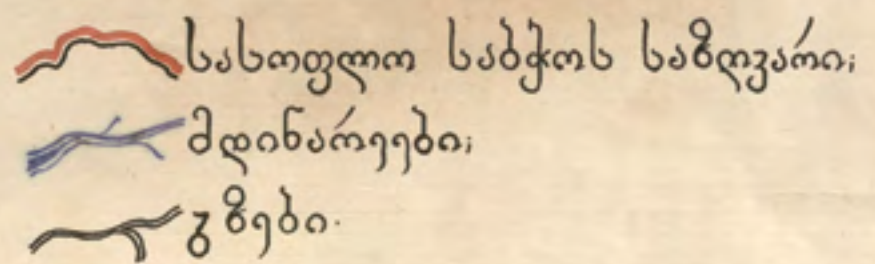 სასოფლო საბჭოს საზღვარი;
მდინარეები;
გზები.